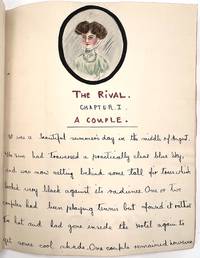 THE RIVAL.
CHAPTER. I.
A COUPLE.
It was a beautiful summer's day in the middle of August.
The sun had traversed a practically clear blue sky,
and was now setting behind some tall fir trees which
looked very black against its radiance. One or two
couples had been playing tennis but found it rather
too hot and had gone inside the hotel again to
get some cool shade. One couple remained however